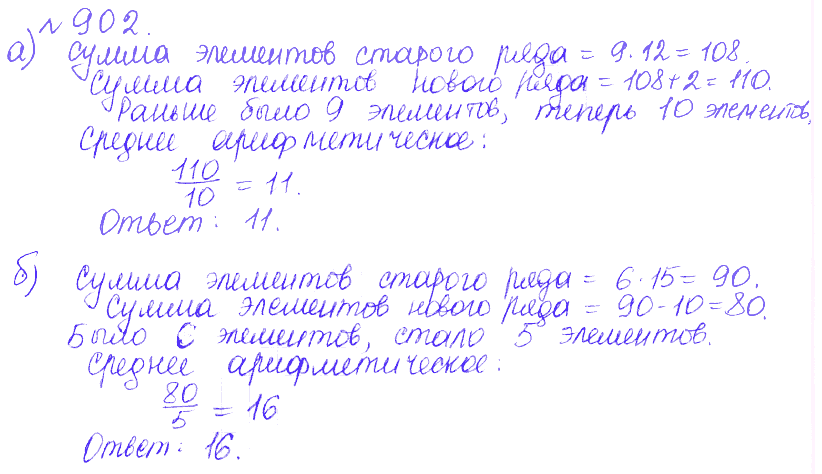 № 902.
а) Сумма элементов старого ряда = 9·12 = 108.
Сумма элементов нового ряда = 108+2 = 110.
Раньше было 9 элементов, теперь 10 элементов,
Среднее арифметическое:
110/10 = 11.
Ответ: 11.
б) Сумма элементов старого ряда = 6·15 = 90.
Сумма элементов нового ряда = 90-10=80.
Было 6 элементов, стало 5 элементов.
Среднее арифметическое:
80/5 = 16
Ответ: 16.